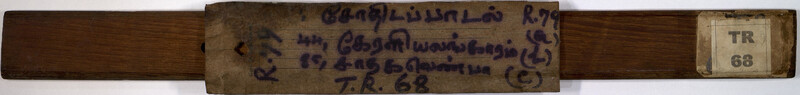 சோதிடப்பாடல் R.79
44, கேரளியலங்காரம் (a)
85, சாதகவெண்பா (c)
T.R. 68
R.79
TR
68